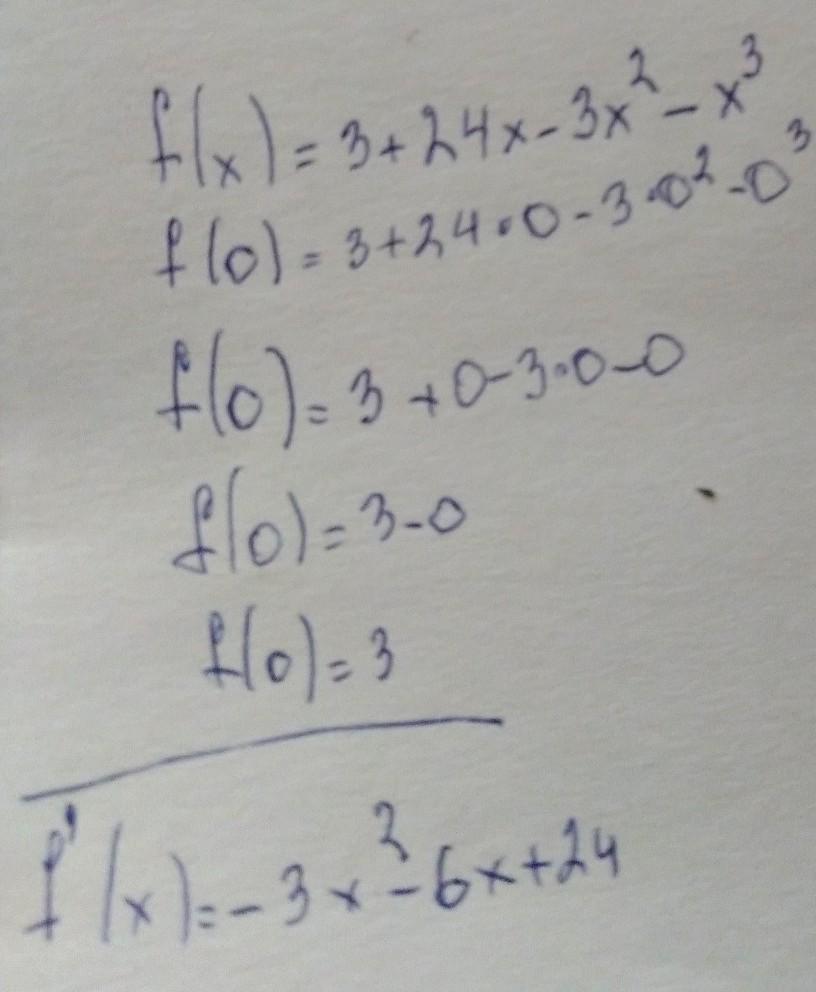 f(x) = 3 + 24x - 3x² - x³
f(0) = 3 + 24 · 0 - 3 · 0² - 0³
f(0) = 3 + 0 - 3 · 0 - 0
f(0) = 3 - 0
f(0) = 3
f'(x) = -3x² - 6x + 24